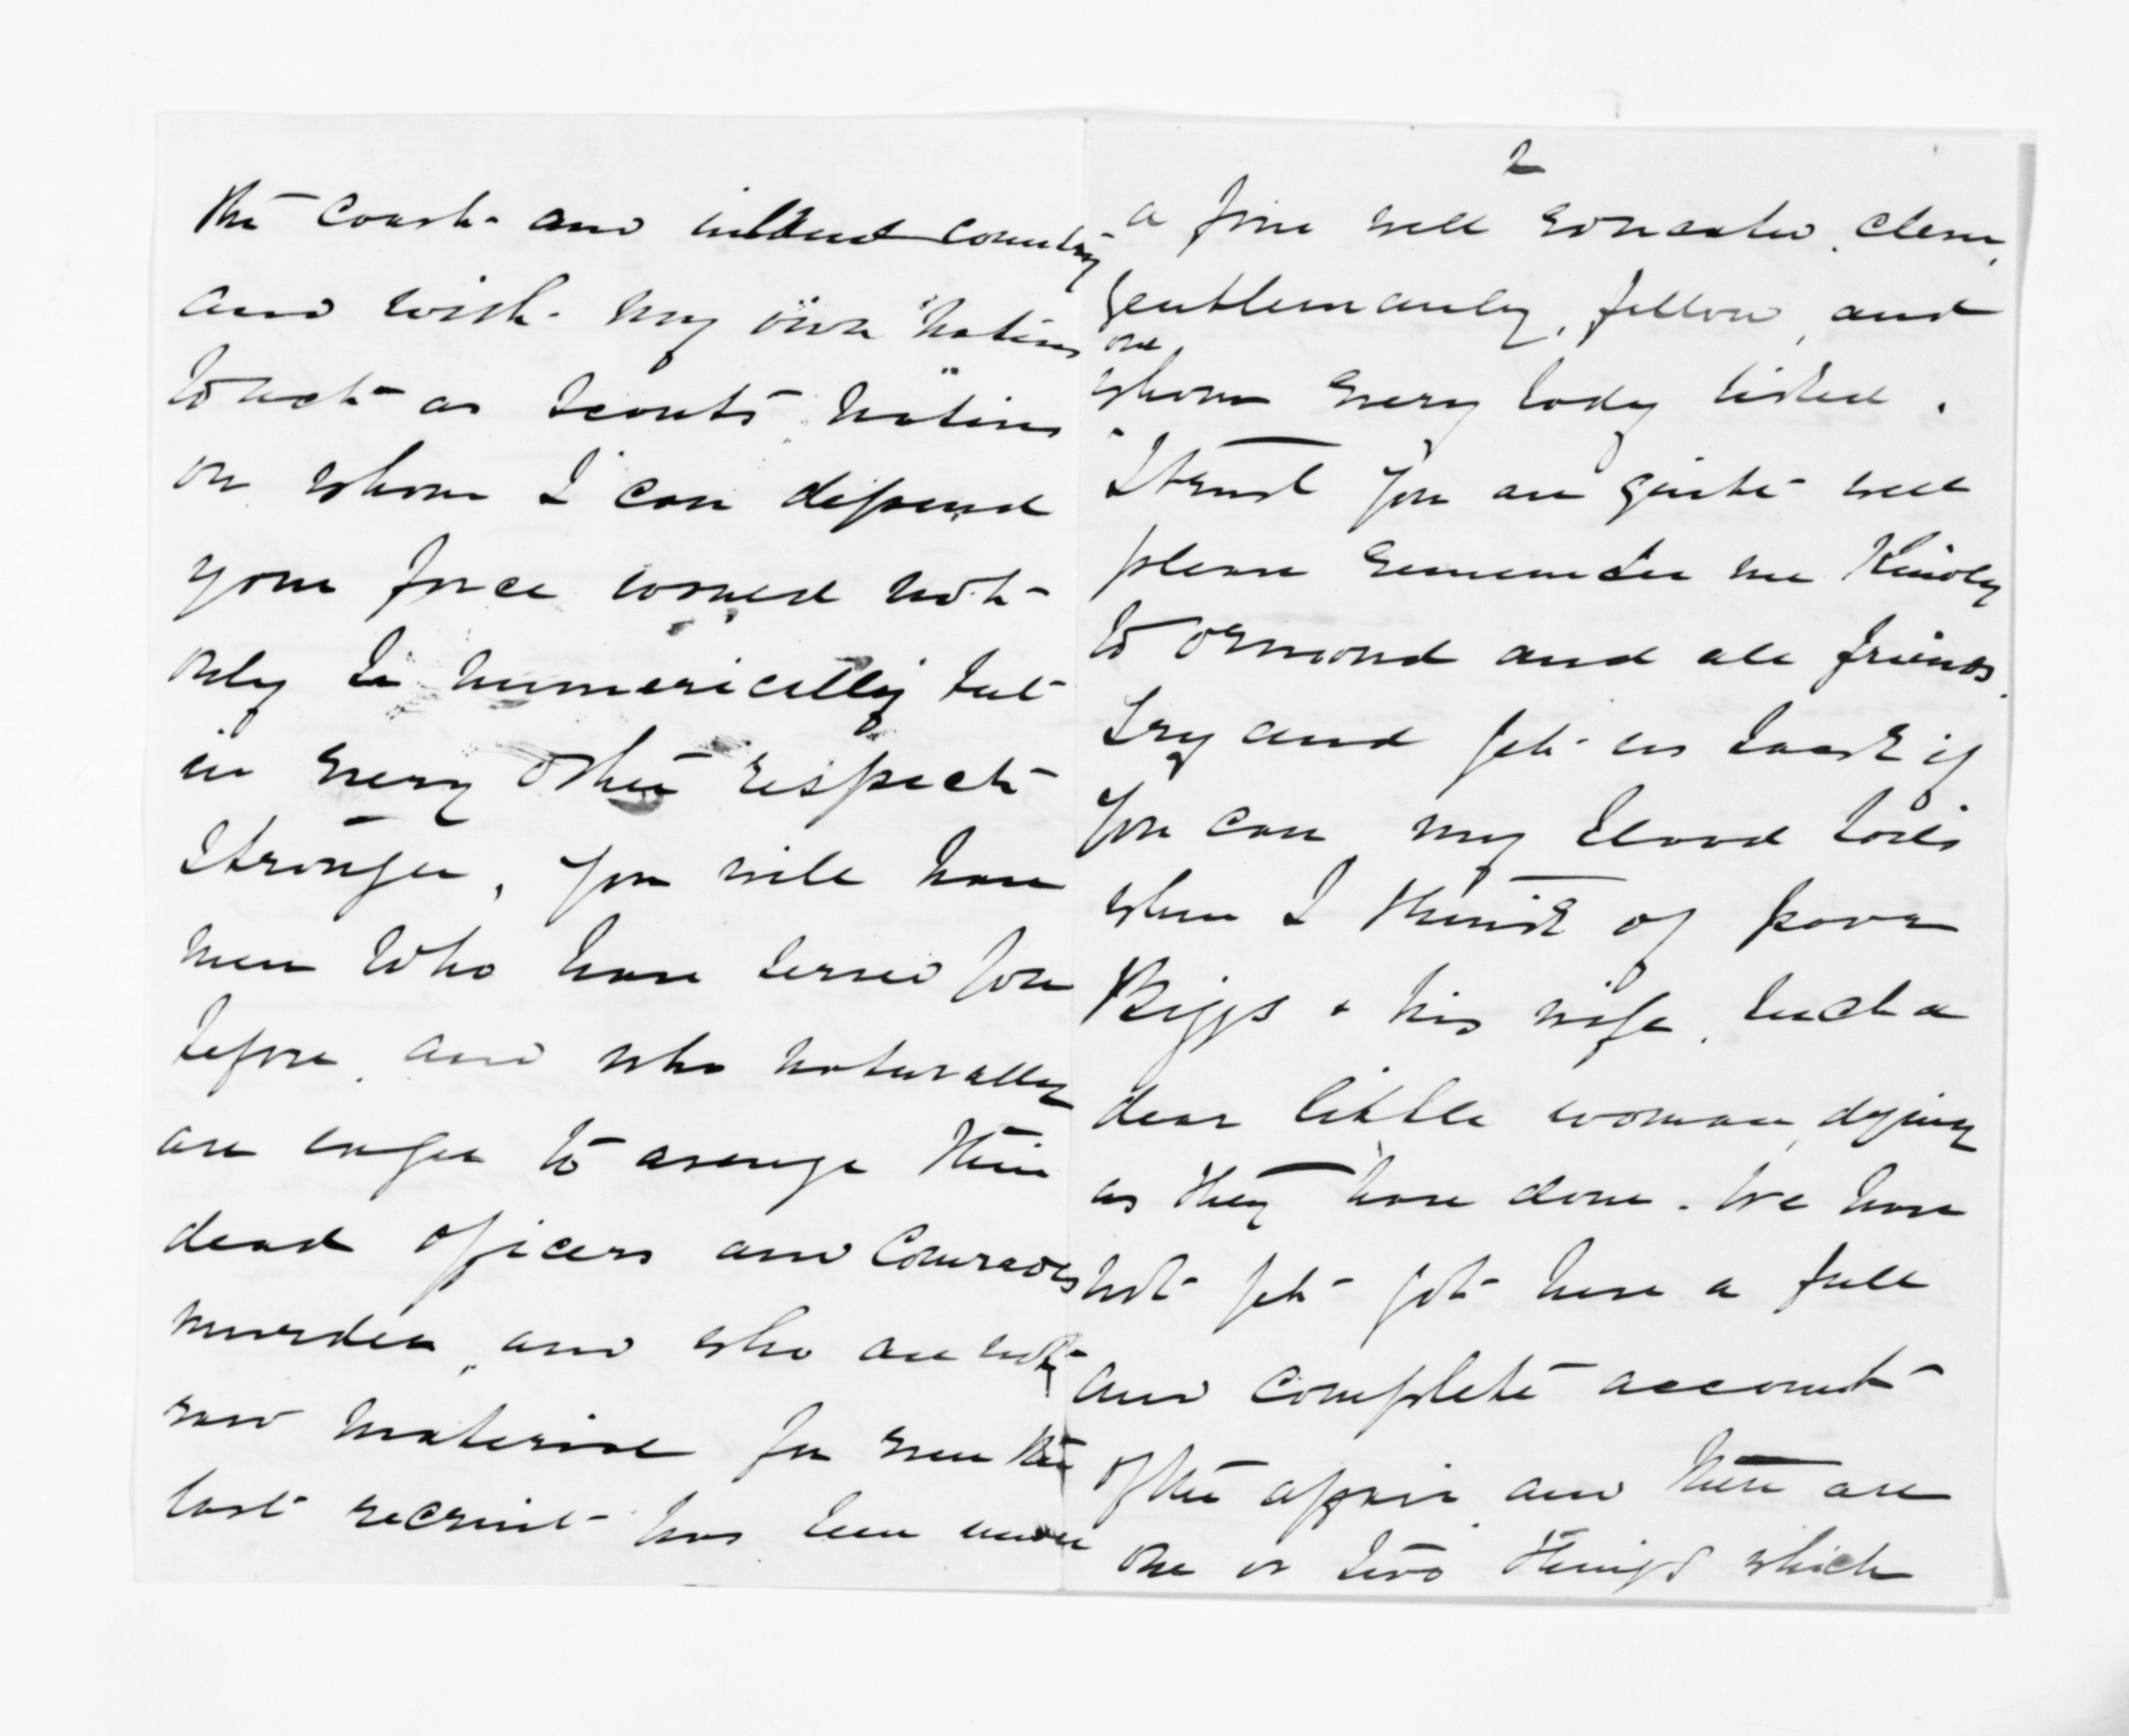 the coast and inland country
and with my own natives
to act as scouts natives
on whom I can depend
your force would not
only be numerically but
in every other respect
stronger, you will have
men who have served you
before, and who naturally
are eager to avenge their
dead officers and comrades
murder, and who are not
raw material for even the
last recruit has been under
2
a fine well educated, clever,
gentlemanly, fellow, and
one
whom every body liked.
I trust you are quite well
please remember me kindly
to Ormond and all friends.
Try and get us back if
you can my blood boils
when I think of poor
Biggs & his wife, such a
dear little woman, dying
as they have done. We have
not yet got here a full
and complete account
of the affair and there are
one or two things which